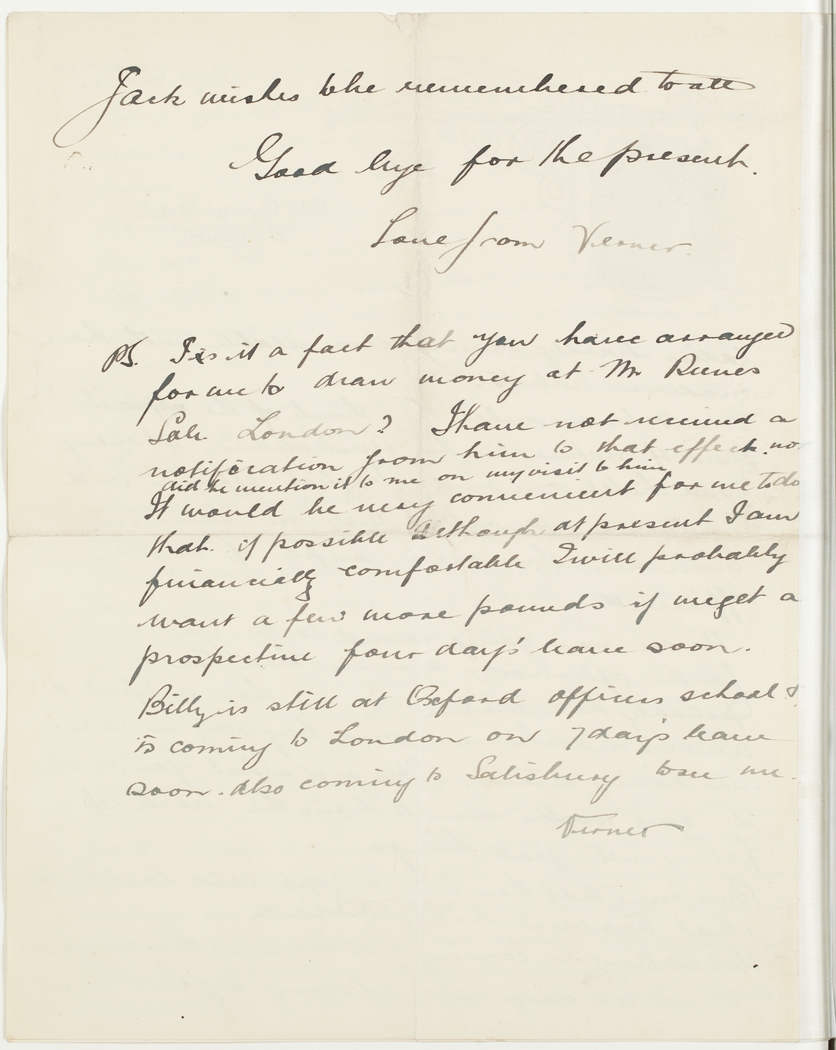 Jack wishes to be remembered to all
Good bye for the present.
Love from Verner.
PS. Is it a fact that you have arranged
for me to draw money at Mr
London? I have not received a
notification from him to that effect. nor
did he mention it to me on my visit to him
It would be very convenient for me to do
that. if possible although at present I am
financially comfortable I will probably
want a few more pounds if we get a
prospective four day's leave soon.
Billy is still at Oxford officers school &
is coming to London on 7 day's leave
soon. also coming to Salisbury to see me.
Verner